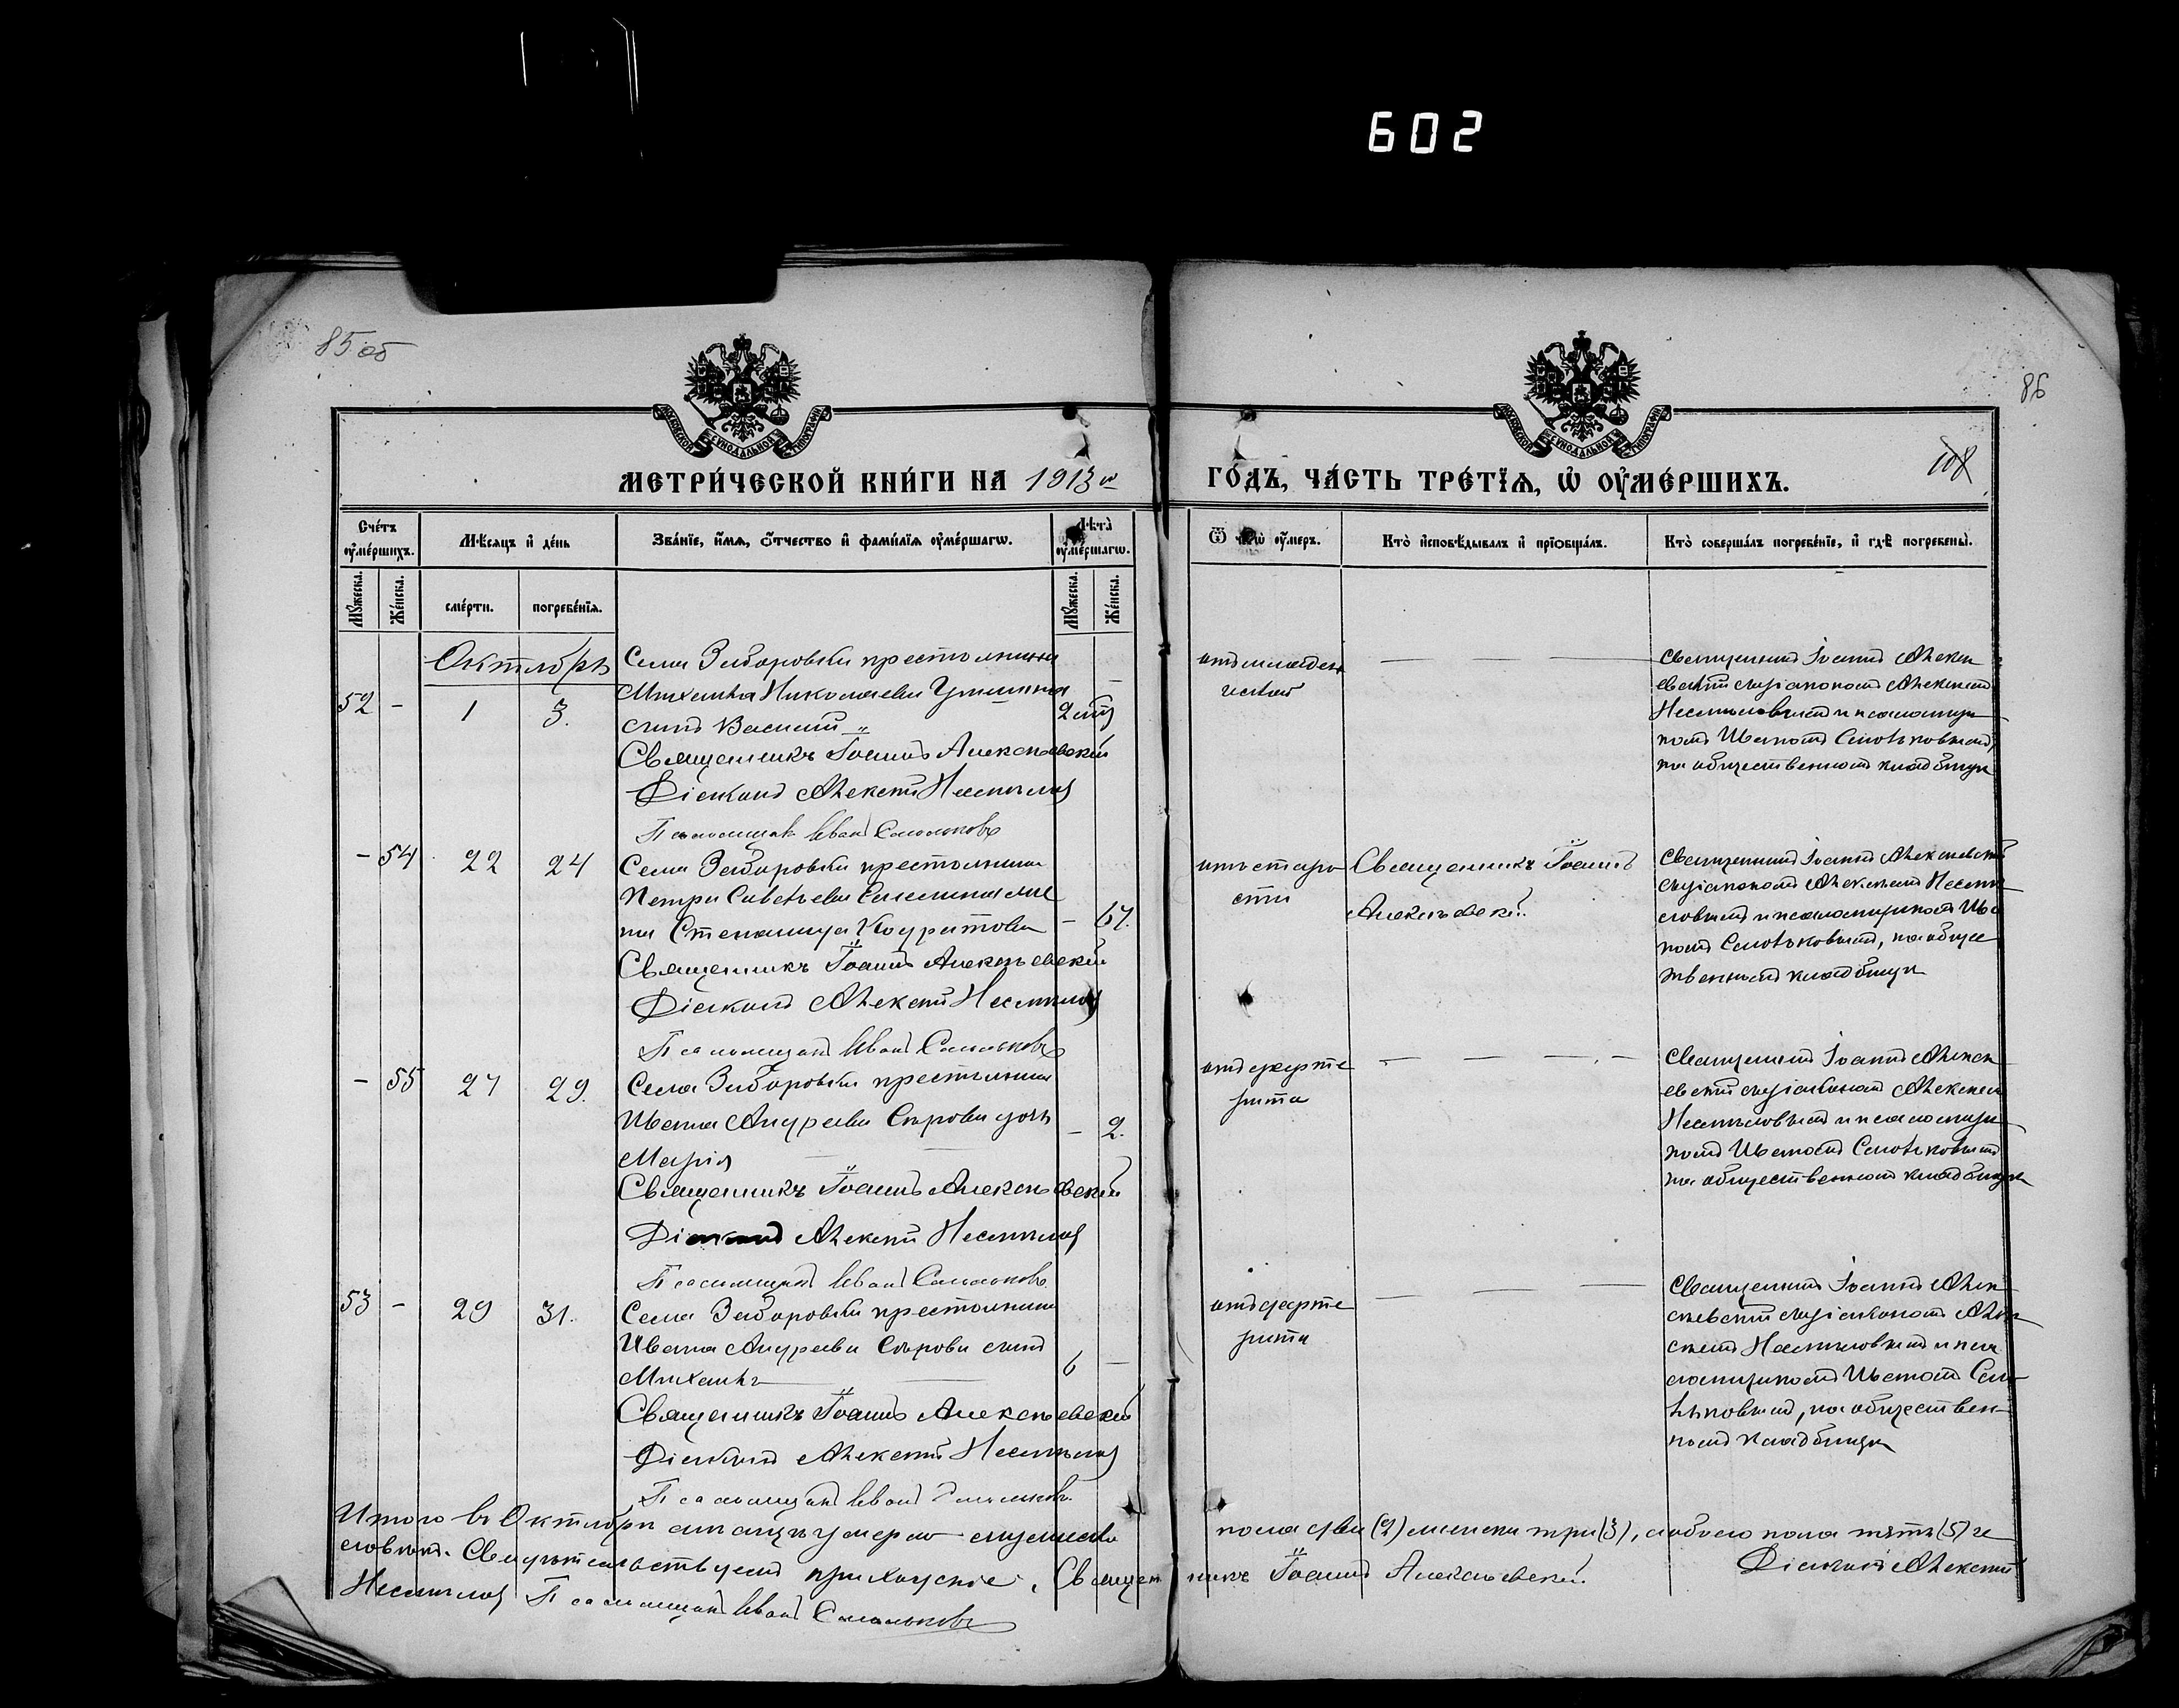 602
85 об
86
108
МЕТРИ́ЧЕСКОЙ КНИ́ГИ НА 1913 й ГО́ДЪ, ЧА́СТЬ ТРЕ́ТЇѦ, Ѡ҆ ОУ҆МЕ́РШИХЪ.
Сче́тъ оу҆ме́ршихъ.
Мѣ́сѧцъ и҆ де́нь
Зва́нїе, и҆́мѧ, о҆́тчество и҆ фами́лїѧ оу҆ме́ршагѡ.
Лѣ́та оу҆ме́ршагѡ.
Ѿ чегѡ̀ оу҆́меръ.
Кто̀ и҆сповѣ́дывалъ и҆ прїѡбща́лъ.
Кто̀ соверша́лъ погребе́нїе, и҆ гдѣ̀ погребены̀.
Мꙋ́жеска.
Же́нска.
сме́рти.
погребе́нїѧ.
Мꙋ́жеска.
Же́нска.
Октябрь
52 - 1 3.
Села Заборовки крестьянина
Михаила Николаева
сынъ Василій
Священникъ Іоаннъ Алексѣевскій
Діаконъ Алексѣй Несмѣловъ
Псаломщикъ Иванъ Смольковъ
отъ младен
ческой
Священникъ Іоаннъ Алексѣ
евскій съ діакономъ Алексѣемъ
Несмѣловымъ и псаломщи
комъ Иваномъ Смольковымъ,
на общественномъ кладбищѣ
- 54 22 24
Села Заборовки крестьянина
Петра Савельева
на Степанида
- 67.
Священникъ Іоаннъ Алексѣевскій
Діаконъ Алексѣй Несмѣловъ
Псаломщикъ Иванъ Смольковъ
отъ старо
сти
Священникъ Іоаннъ
Алексѣевскій.
Священникъ Іоаннъ Алексѣевскій
съ діакономъ Алексѣемъ Несмѣ
ловымъ и псаломщикомъ Ива
номъ Смольковымъ, на общес
твенномъ кладбищѣ
- 55 27 29.
Села Заборовки крестьянина
Ивана Андреева Сѣрова дочь
Марія
- 2.
Священникъ Іоаннъ Алексѣевскій
Діаконъ Алексѣй Несмѣловъ
Псаломщикъ Иванъ Смольковъ
отъ дифте
рита
Священникъ Іоаннъ Алексѣ
евскій съ діакономъ Алексѣемъ
Несмѣловымъ и псаломщи
комъ Иваномъ Смольковымъ
на общественномъ кладбищѣ
53 - 29 31.
Села Заборовки крестьянина
Ивана Андреева Сѣрова сынъ
Михаилъ
6 -
Священникъ Іоаннъ Алексѣевскій
Діаконъ Алексѣй Несмѣловъ
Псаломщикъ Иванъ Смольковъ
отъ дифте
рита
Священникъ Іоаннъ Алек
сѣевскій съ діакономъ Алек
сѣемъ Несмѣловымъ и пса
ломщикомъ Иваномъ Смо
льковымъ, на обществен
номъ кладбищѣ
Итого въ Октябрѣ мѣсяцѣ умерло мужеска пола два (2) женска три (3), а обоего пола пять (5) че
ловѣкъ. Свидѣтельствуемъ приходскіе: Священникъ Іоаннъ Алексѣевскій. Діаконъ Алексѣй
Несмѣловъ Псаломщикъ Иванъ Смольковъ